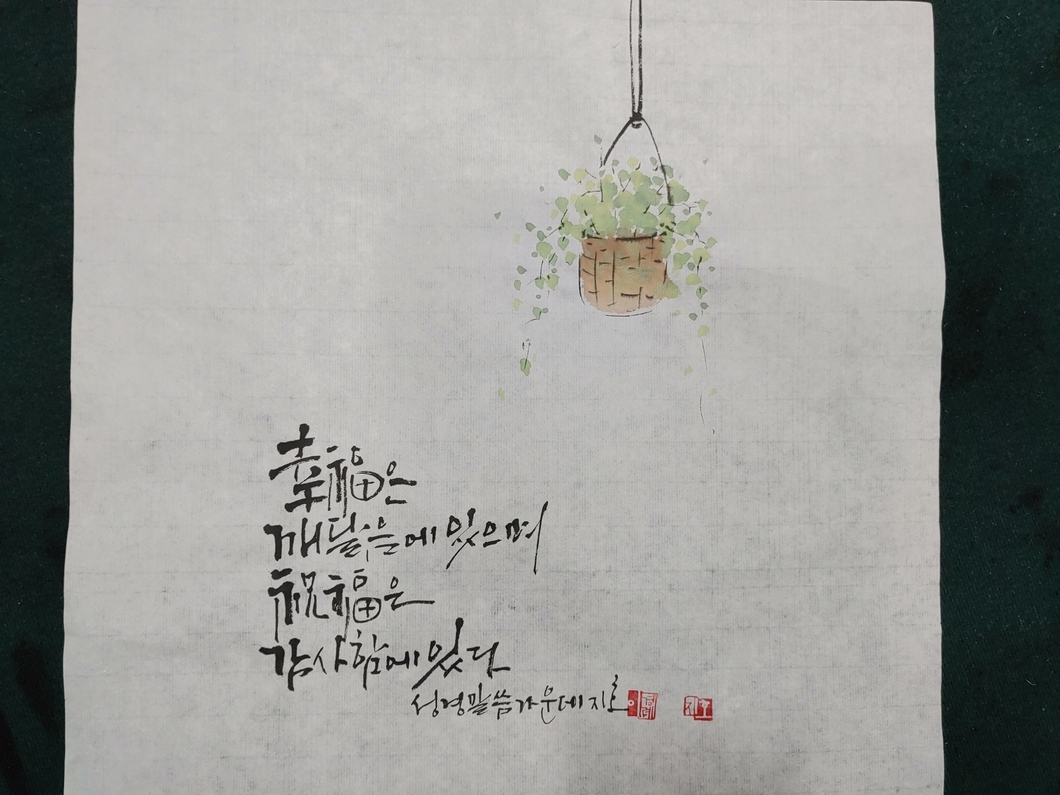 幸福은
깨달음에 있으며
祝福은
감사함에 있다
성경말씀 가운데 지호